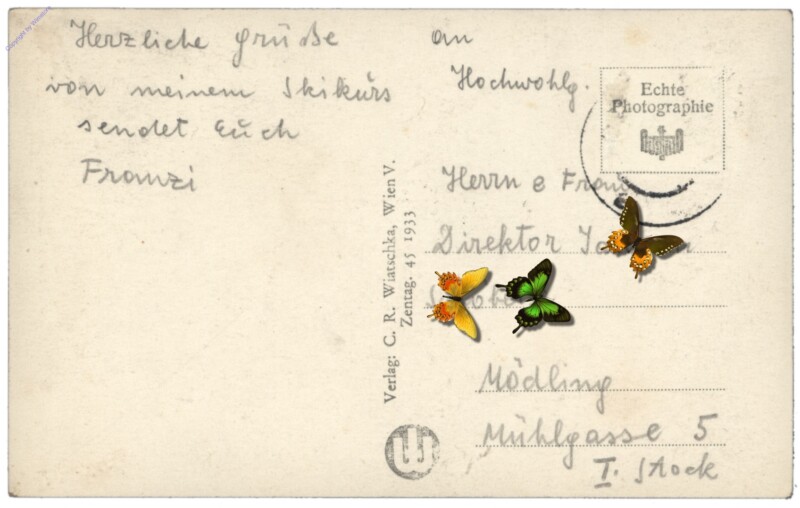 Herzliche Grüße
von meinem Skikurs
sendet Euch
Franzi
an
Hochwohlg.
Echte
Photographie
Herrn e Frau
Direktor
Mödling
Mühlgasse 5
I. Stock
Verlag: C. R. Wiatschka, Wien V.
Zentag. 45 1933